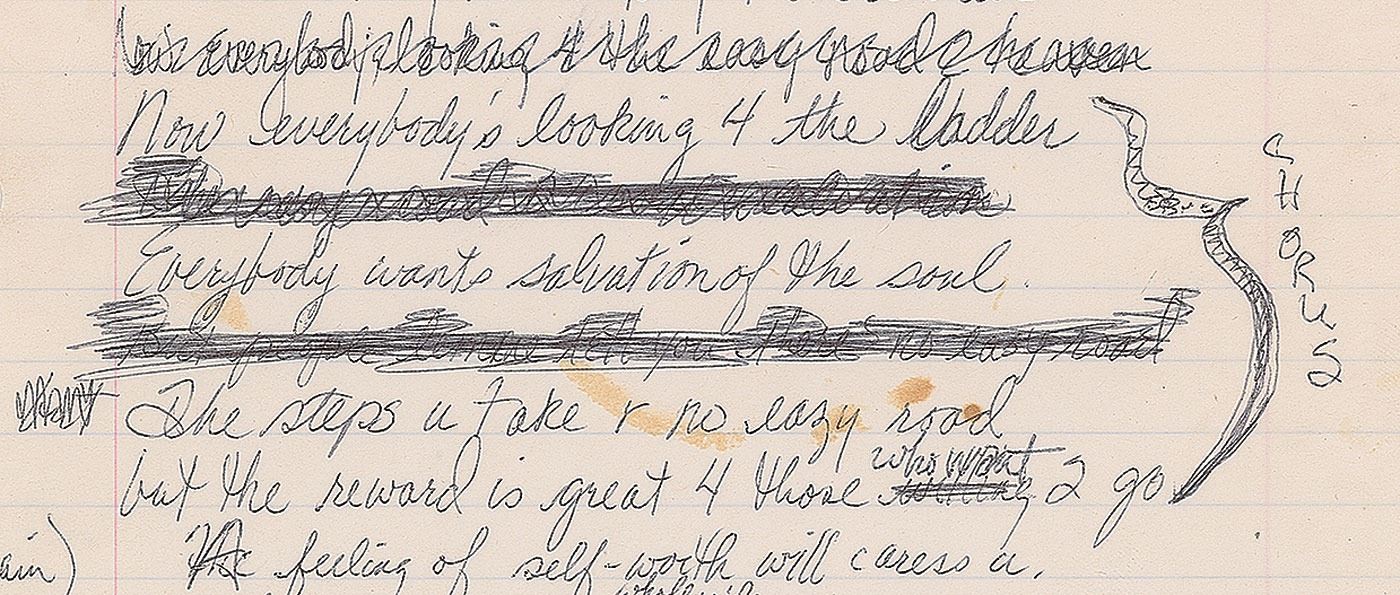 everybody's looking 4 the easy road 2 heaven
Now everybody's looking 4 the ladder
Everybody wants salvation of the soul.
But people tell you there's no easy road
The steps u take r no easy road
who want
but the reward is great 4 those willing 2 go
CHORUS
ain)
The feeling of self-worth will caress u.